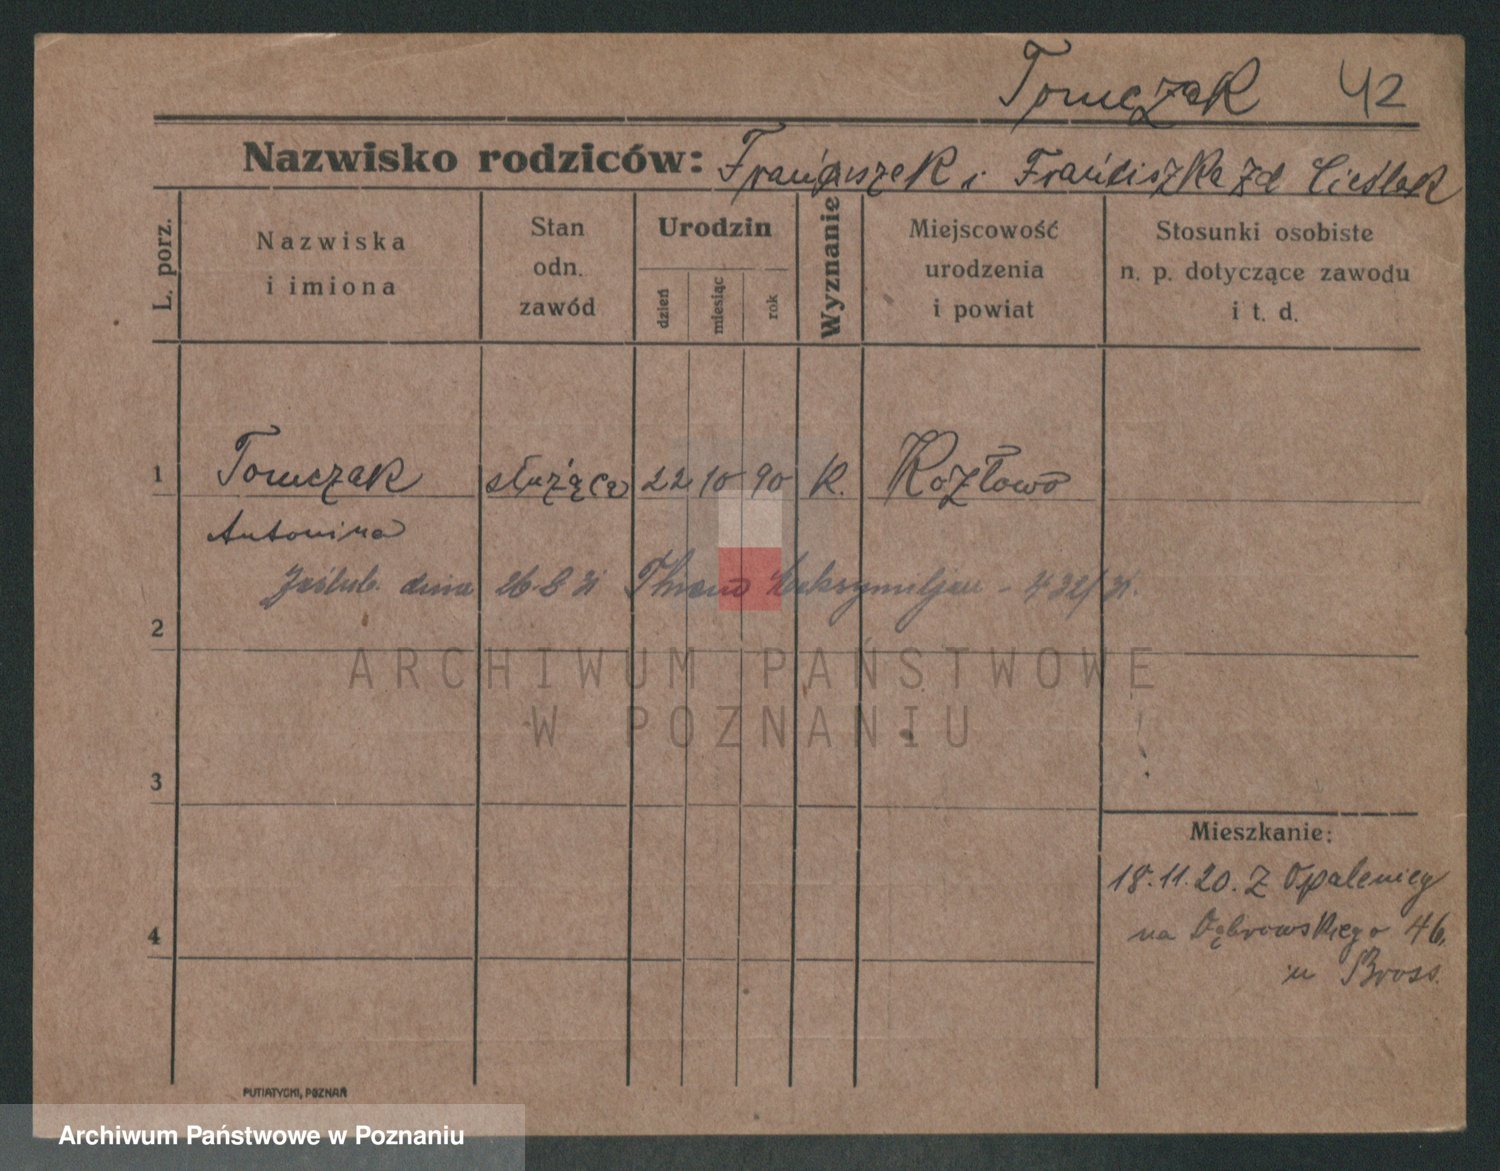 Tomczak 42
Nazwisko rodziców: Franciszek i Franciszka zd Cieślak
L. porz.
Nazwiska
i imiona
Stan
odn.
zawód
Urodzin
dzień
miesiąc
rok
Wyznanie
Miejscowość
urodzenia
i powiat
Stosunki osobiste
n. p. dotyczące zawodu
i t. d.
1 Tomczak służąca 22 10 90 k. Kozłowo
Antonina
dnia 26.8.21
2
ARCHIWUM PAŃSTWOWE
W POZNANIU
3
Mieszkanie:
18.11.20. z Opalenicy
4
na Dąbrowskiego 46.
u Bross.
PUTIATYCKI, POZNAŃ
Archiwum Państwowe w Poznaniu